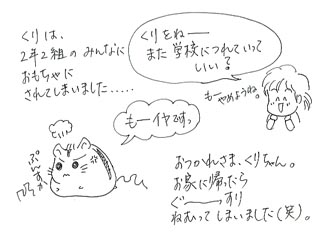 くりは、
2年2組のみんなに
おもちゃに
されてしまいました.....
くりをねー
また学校につれていって
いい?
もーやめようね。
もーイヤですっ
ぷんすか
おつかれさま、くりちゃん。
お家に帰ったら
ぐーーっすり
ねむってしまいました(笑)。